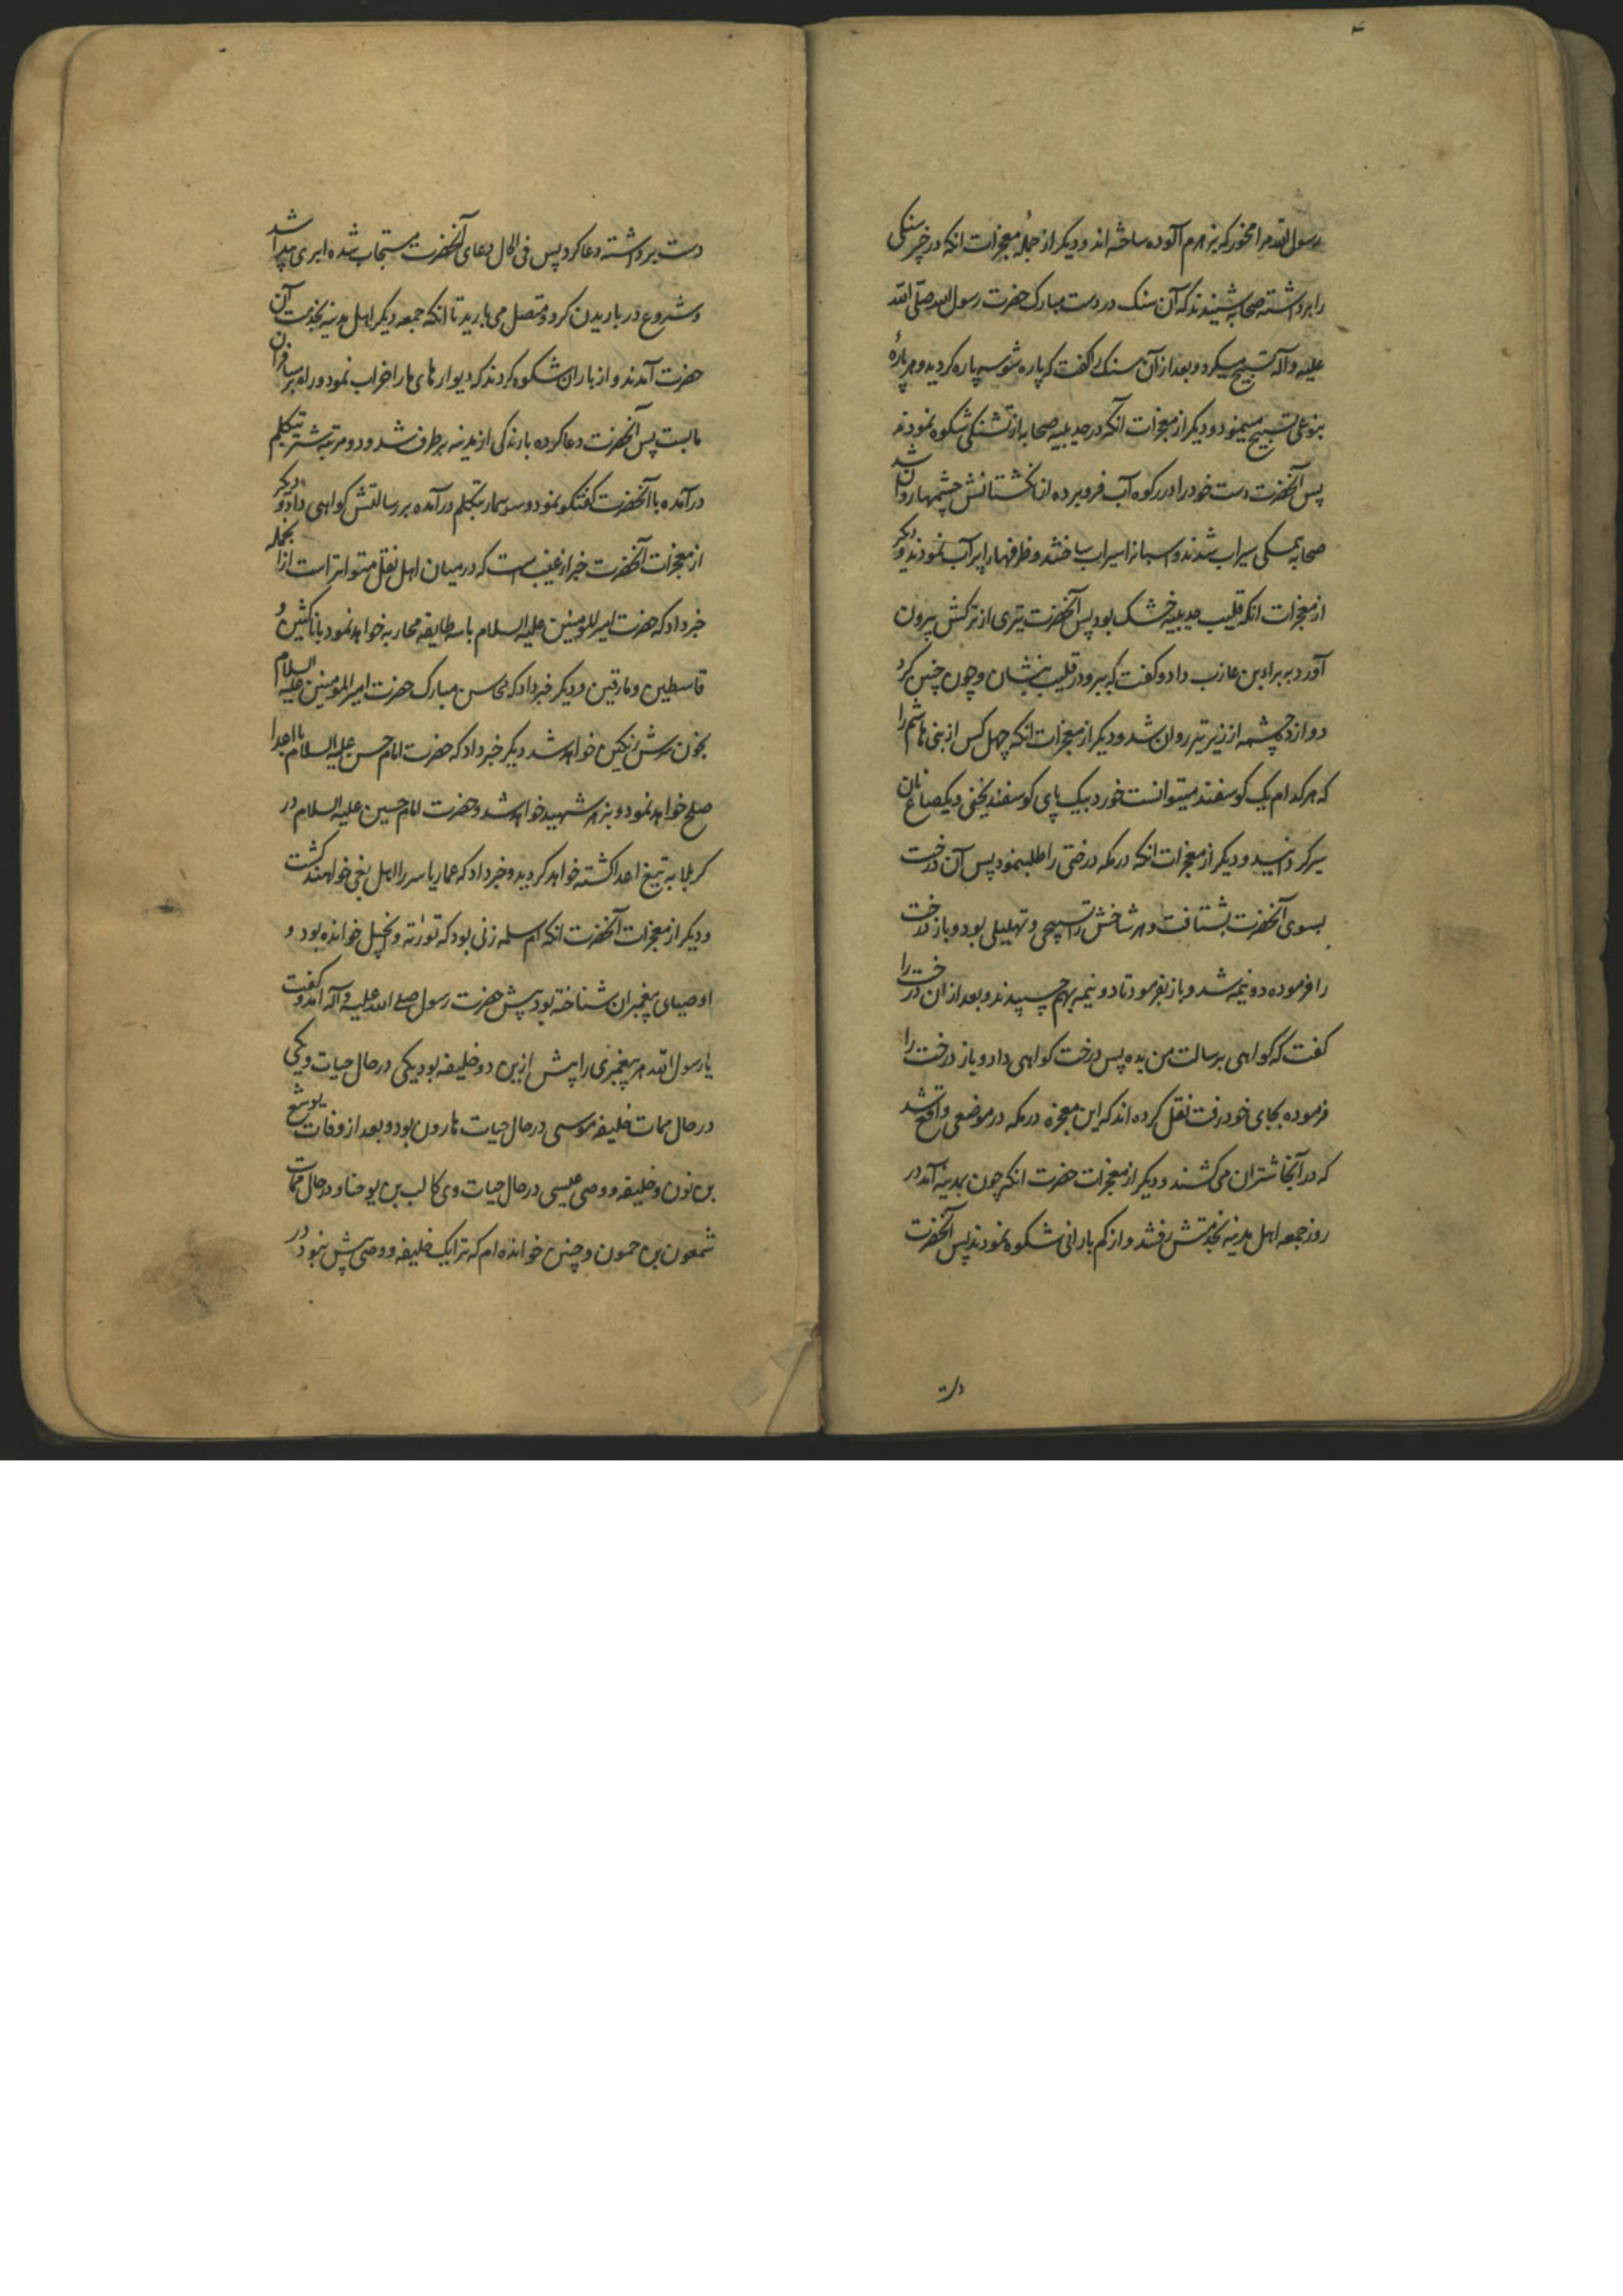 رسول الله مرا مخور که بزهرم آلوده ساخته اند و دیگر از جملهٔ معجزات انکه در خبر سنکی
را برداشته صحابه شنیدند که آن سنک در دست مبارک حضرت رسول الله صلی الله
علیه و آله تسبیح میکرد و بعد از آن سنک را کفت که پاره شو سه پاره کردید و هر پارهٔ
بنوعی تسبیح مینمود و دیکر از معجزات آنکه در حدیبیه صحابه از تشنکی شکوه نمودند
پس آنحضرت دست خود را در رکوه آب فرو برده از انکشتانش چشمها روان شد
صحابه همکی سیراب شدند و اسبانرا سیراب ساختند و ظرفها را پر آب نمودند و دیکر
از معجزات انکه قلیب حدیبیه خشک بود پس آنحضرت تیری از ترکش بیرون
آورد ببراء بن عازب داد و کفت که ببر و در قلیب بنشان و چون چنین کرد
دوازده چشمه از زیر تیر روان شد و دیکر از معجزات انکه چهل کس از بنی هاشم را
که هر کدام یک کوسفند میتوانست خورد بیک پای کوسفند یخنی و یکصاع نان
سیر کردانید و دیکر از معجزات انکه در مکه درختی را طلبنمود پس آن درخت
بسوی آنحضرت بشتافت و هر شاخش را تسبیحی و تهلیلی بود و باز درخت
را فرموده دو نیمه شد و باز بفرمود تا دو نیمه بهم چسپیدند و بعد از ان درخت را
کفت که کواهی برسالت من بده پس درخت کواهی داد و باز درخت را
فرموده بجای خود رفت نقل کرده اند که این معجزه در مکه در موضعی واقع شد
که در آنجا شتران می کشند و دیکر از معجزات حضرت انکه چون بمدینه آمد در
روز جمعه اهل مدینه بخدمتش رفتند و از کم بارانی شکوه نمودند پس آنحضرت
دست
دست برداشته دعا کرد پس فی الحال دعای آنحضرت مستجاب شده ابری پیدا شد
و شروع در باریدن کرد و متصل می بارید تا انکه جمعه دیکر اهل مدینه بخدمت آن
حضرت آمدند و از باران شکوه کردند که دیوارهای ما را خراب نمود و راه بر مسافران
ما بست پس آنحضرت دعا کرده بارندکی از مدینه برطرف شد و دو مرتبه شتر بتکلم
درآمده با آنحضرت کفتکو نمود و سوسمار بتکلم درآمده بر رسالتش کواهی داد و دیکر
از معجزات آنحضرت خبر از غیب است که در میان اهل نقل متواتر است از انجمله
خبر داد که حضرت امیر المومنین علیه السلام با سه طایفه محاربه خواهد نمود با ناکثین و
قاسطین و مارقین و دیکر خبر داد که محاسن مبارک حضرت امیر المومنین علیه السلام
بخون سرش رنکین خواهد شد دیکر خبر داد که حضرت امام حسن علیه السلام با اعدا
صلح خواهد نمود و بزهر شهید خواهد شد و حضرت امام حسین علیه السلام در
کربلا به تیغ اعدا کشته خواهد کردید و خبر داد که عمار یاسر را اهل بغی خواهند کشت
و دیکر از معجزات آنحضرت انکه ام سلمه زنی بود که تورته و انجیل خوانده بود و
اوصیای پیغمبران شناخته بود پیش حضرت رسول صلی الله علیه و آله آمد و کفت
یا رسول الله هر پیغمبری را پیش ازین دو خلیفه بود یکی در حال حیات و یکی
در حال ممات خلیفه موسی در حال حیات هارون بود و بعد از وفات یوشع
بن نون و خلیفه و وصی عیسی در حال حیات وی کالب بن یوحنا و در حال ممات
شمعون بن حمون و چنین خوانده ام که ترا یک خلیفه و وصی پیش نبود در